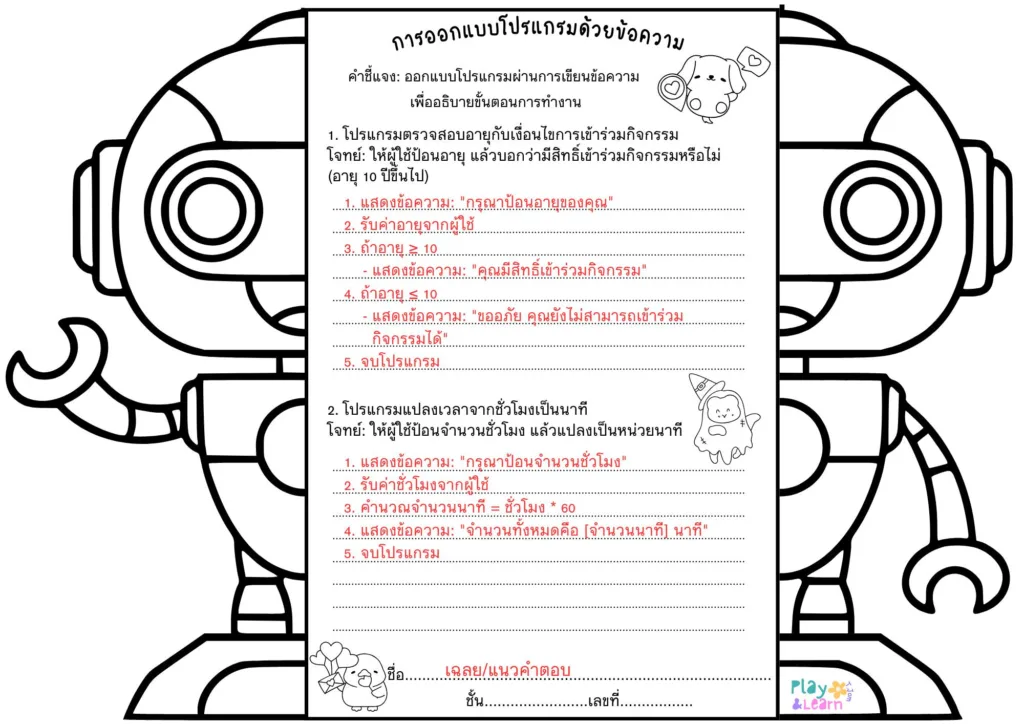 การออกแบบโปรแกรมด้วยข้อความ
คำชี้แจง: ออกแบบโปรแกรมผ่านการเขียนข้อความ
เพื่ออธิบายขั้นตอนการทำงาน
1. โปรแกรมตรวจสอบอายุกับเงื่อนไขการเข้าร่วมกิจกรรม
โจทย์: ให้ผู้ใช้ป้อนอายุ แล้วบอกว่ามีสิทธิ์เข้าร่วมกิจกรรมหรือไม่
(อายุ 10 ปีขึ้นไป)
1. แสดงข้อความ: "กรุณาป้อนอายุของคุณ"
2. รับค่าอายุจากผู้ใช้
3. ถ้าอายุ ≥ 10
- แสดงข้อความ: "คุณมีสิทธิ์เข้าร่วมกิจกรรม"
4. ถ้าอายุ ≤ 10
- แสดงข้อความ: "ขออภัย คุณยังไม่สามารถเข้าร่วม
กิจกรรมได้"
5. จบโปรแกรม
2. โปรแกรมแปลงเวลาจากชั่วโมงเป็นนาที
โจทย์: ให้ผู้ใช้ป้อนจำนวนชั่วโมง แล้วแปลงเป็นหน่วยนาที
1. แสดงข้อความ: "กรุณาป้อนจำนวนชั่วโมง"
2. รับค่าชั่วโมงจากผู้ใช้
3. คำนวณจำนวนนาที = ชั่วโมง * 60
4. แสดงข้อความ: "จำนวนทั้งหมดคือ [จำนวนนาที] นาที"
5. จบโปรแกรม
ชื่อ.....เฉลย/แนวคำตอบ.....
ชั้น.........................เลขที่.................
Play
&Learn